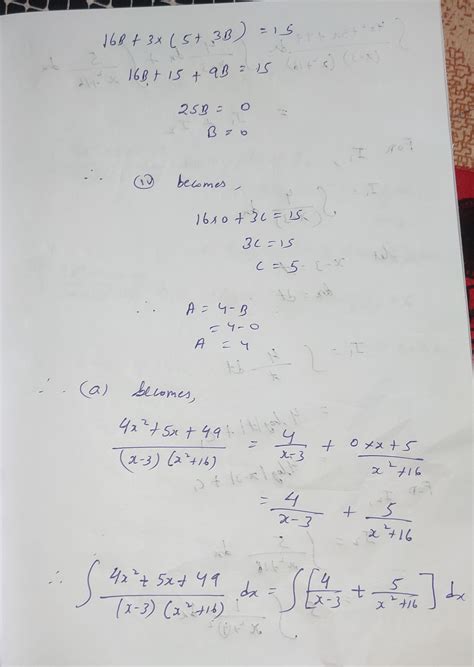 16B + 3x (5 + 3B) = 15
16B + 15 + 9B = 15
25B = 0
B = 0
∴ (iv) becomes,
16x0 + 3C = 15
3C = 15
C = 5
∴ A = 4-B
= 4-0
A = 4
∴ (a) becomes,
4x² + 5x + 49 / (x-3) (x²+16) = 4 / x-3 + 0xx + 5 / x²+16
= 4 / x-3 + 5 / x²+16
∴ ∫ 4x² + 5x + 49 / (x-3) (x²+16) dx = ∫ [ 4 / x-3 + 5 / x²+16 ] dx